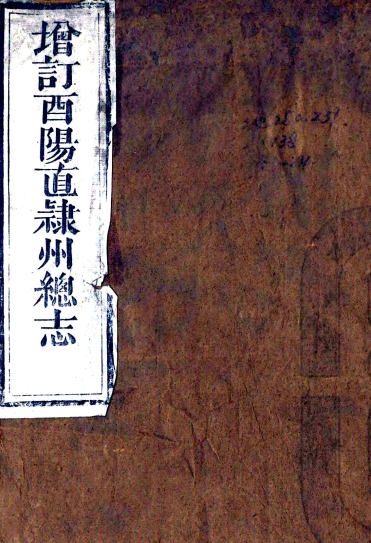 增訂酉陽直隸州總志